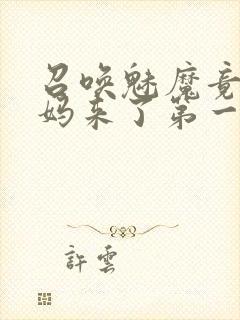 召唤魅魔竟
妈来了第一
許雲